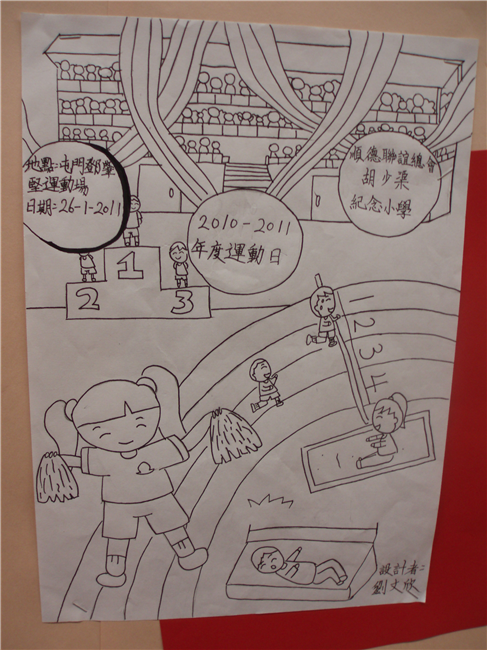 地點:屯門鄧肇
堅運動場
日期:26-1-2011
順德聯誼總會
胡少渠
紀念小學
2010-2011
年度運動日
1
2
3
1
2
3
4
設計者:
劉文欣